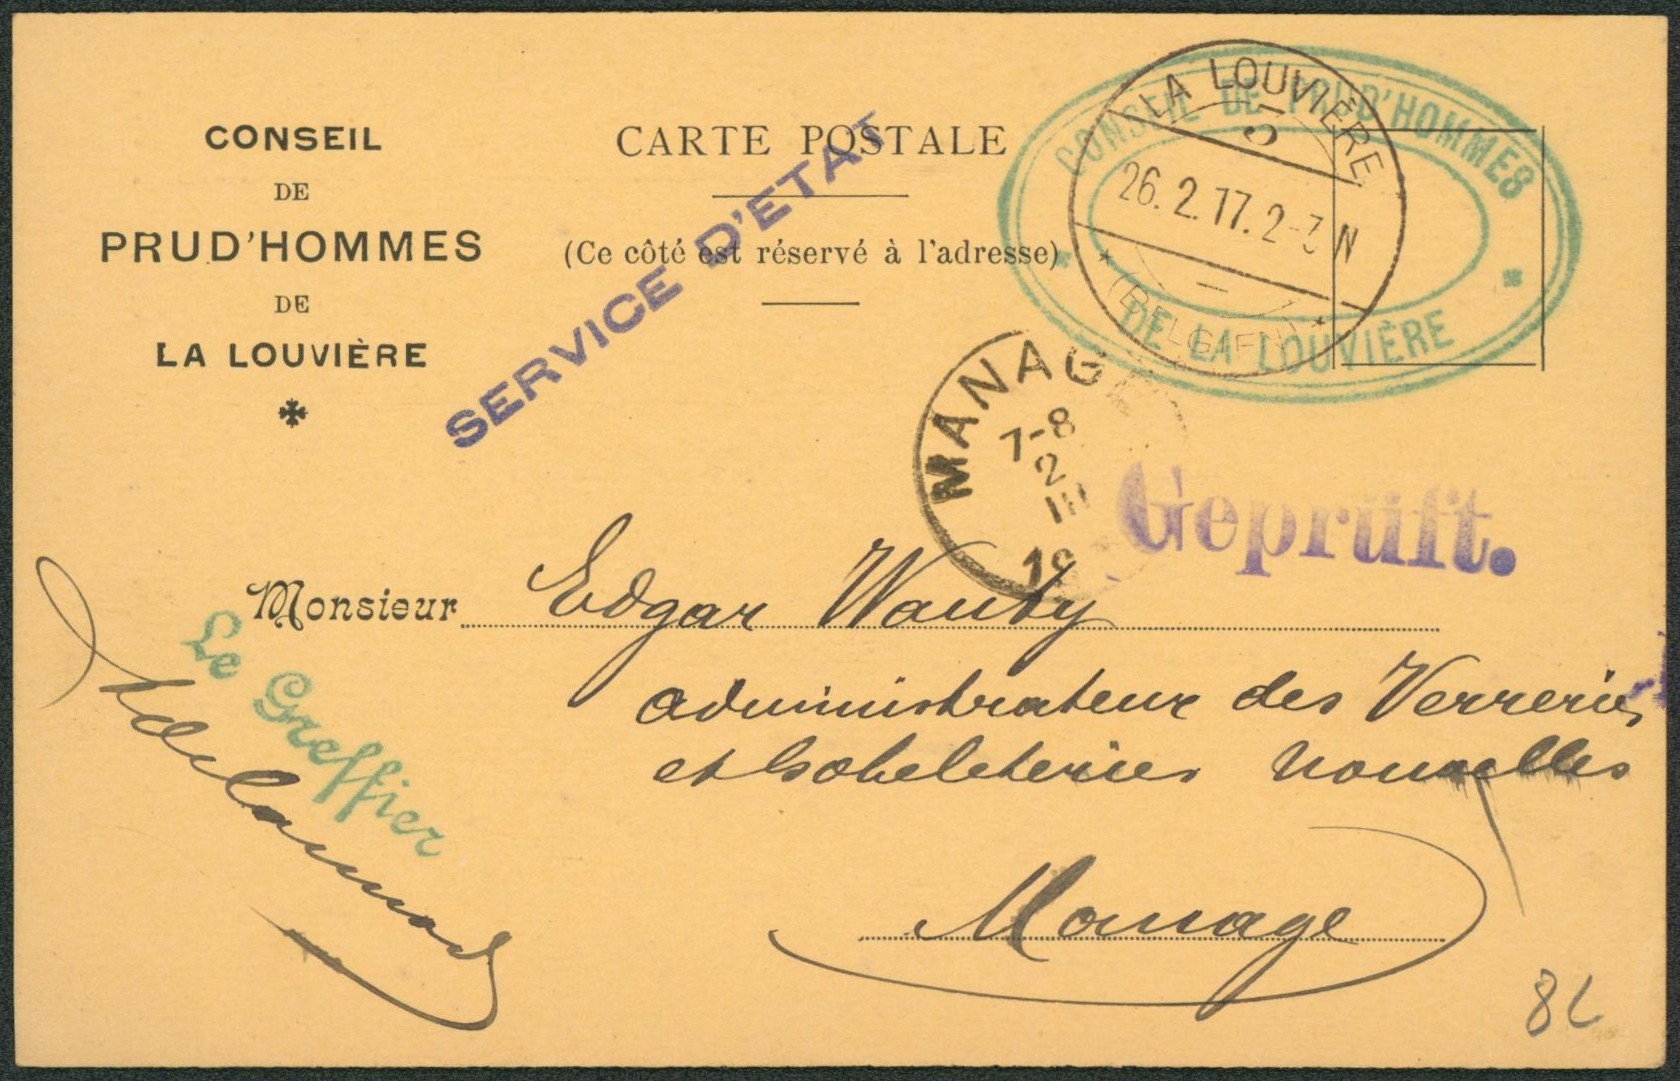 CONSEIL
DE
PRUD'HOMMES
DE
LA LOUVIÈRE
CARTE POSTALE
(Ce côté est réservé à l'adresse)
SERVICE D'ETAT
CONSEIL DE PRUD'HOMMES
DE LA LOUVIÈRE
LA LOUVIÈRE
5
26.2.17.2-3 N
(BELGIEN)
MANAGE
7-8
2
III
19
Geprüft.
Monsieur Edgar Wauty
administrateur des Verreries
et Gobeleteries nouvelles
Manage
Le Greffier
8L